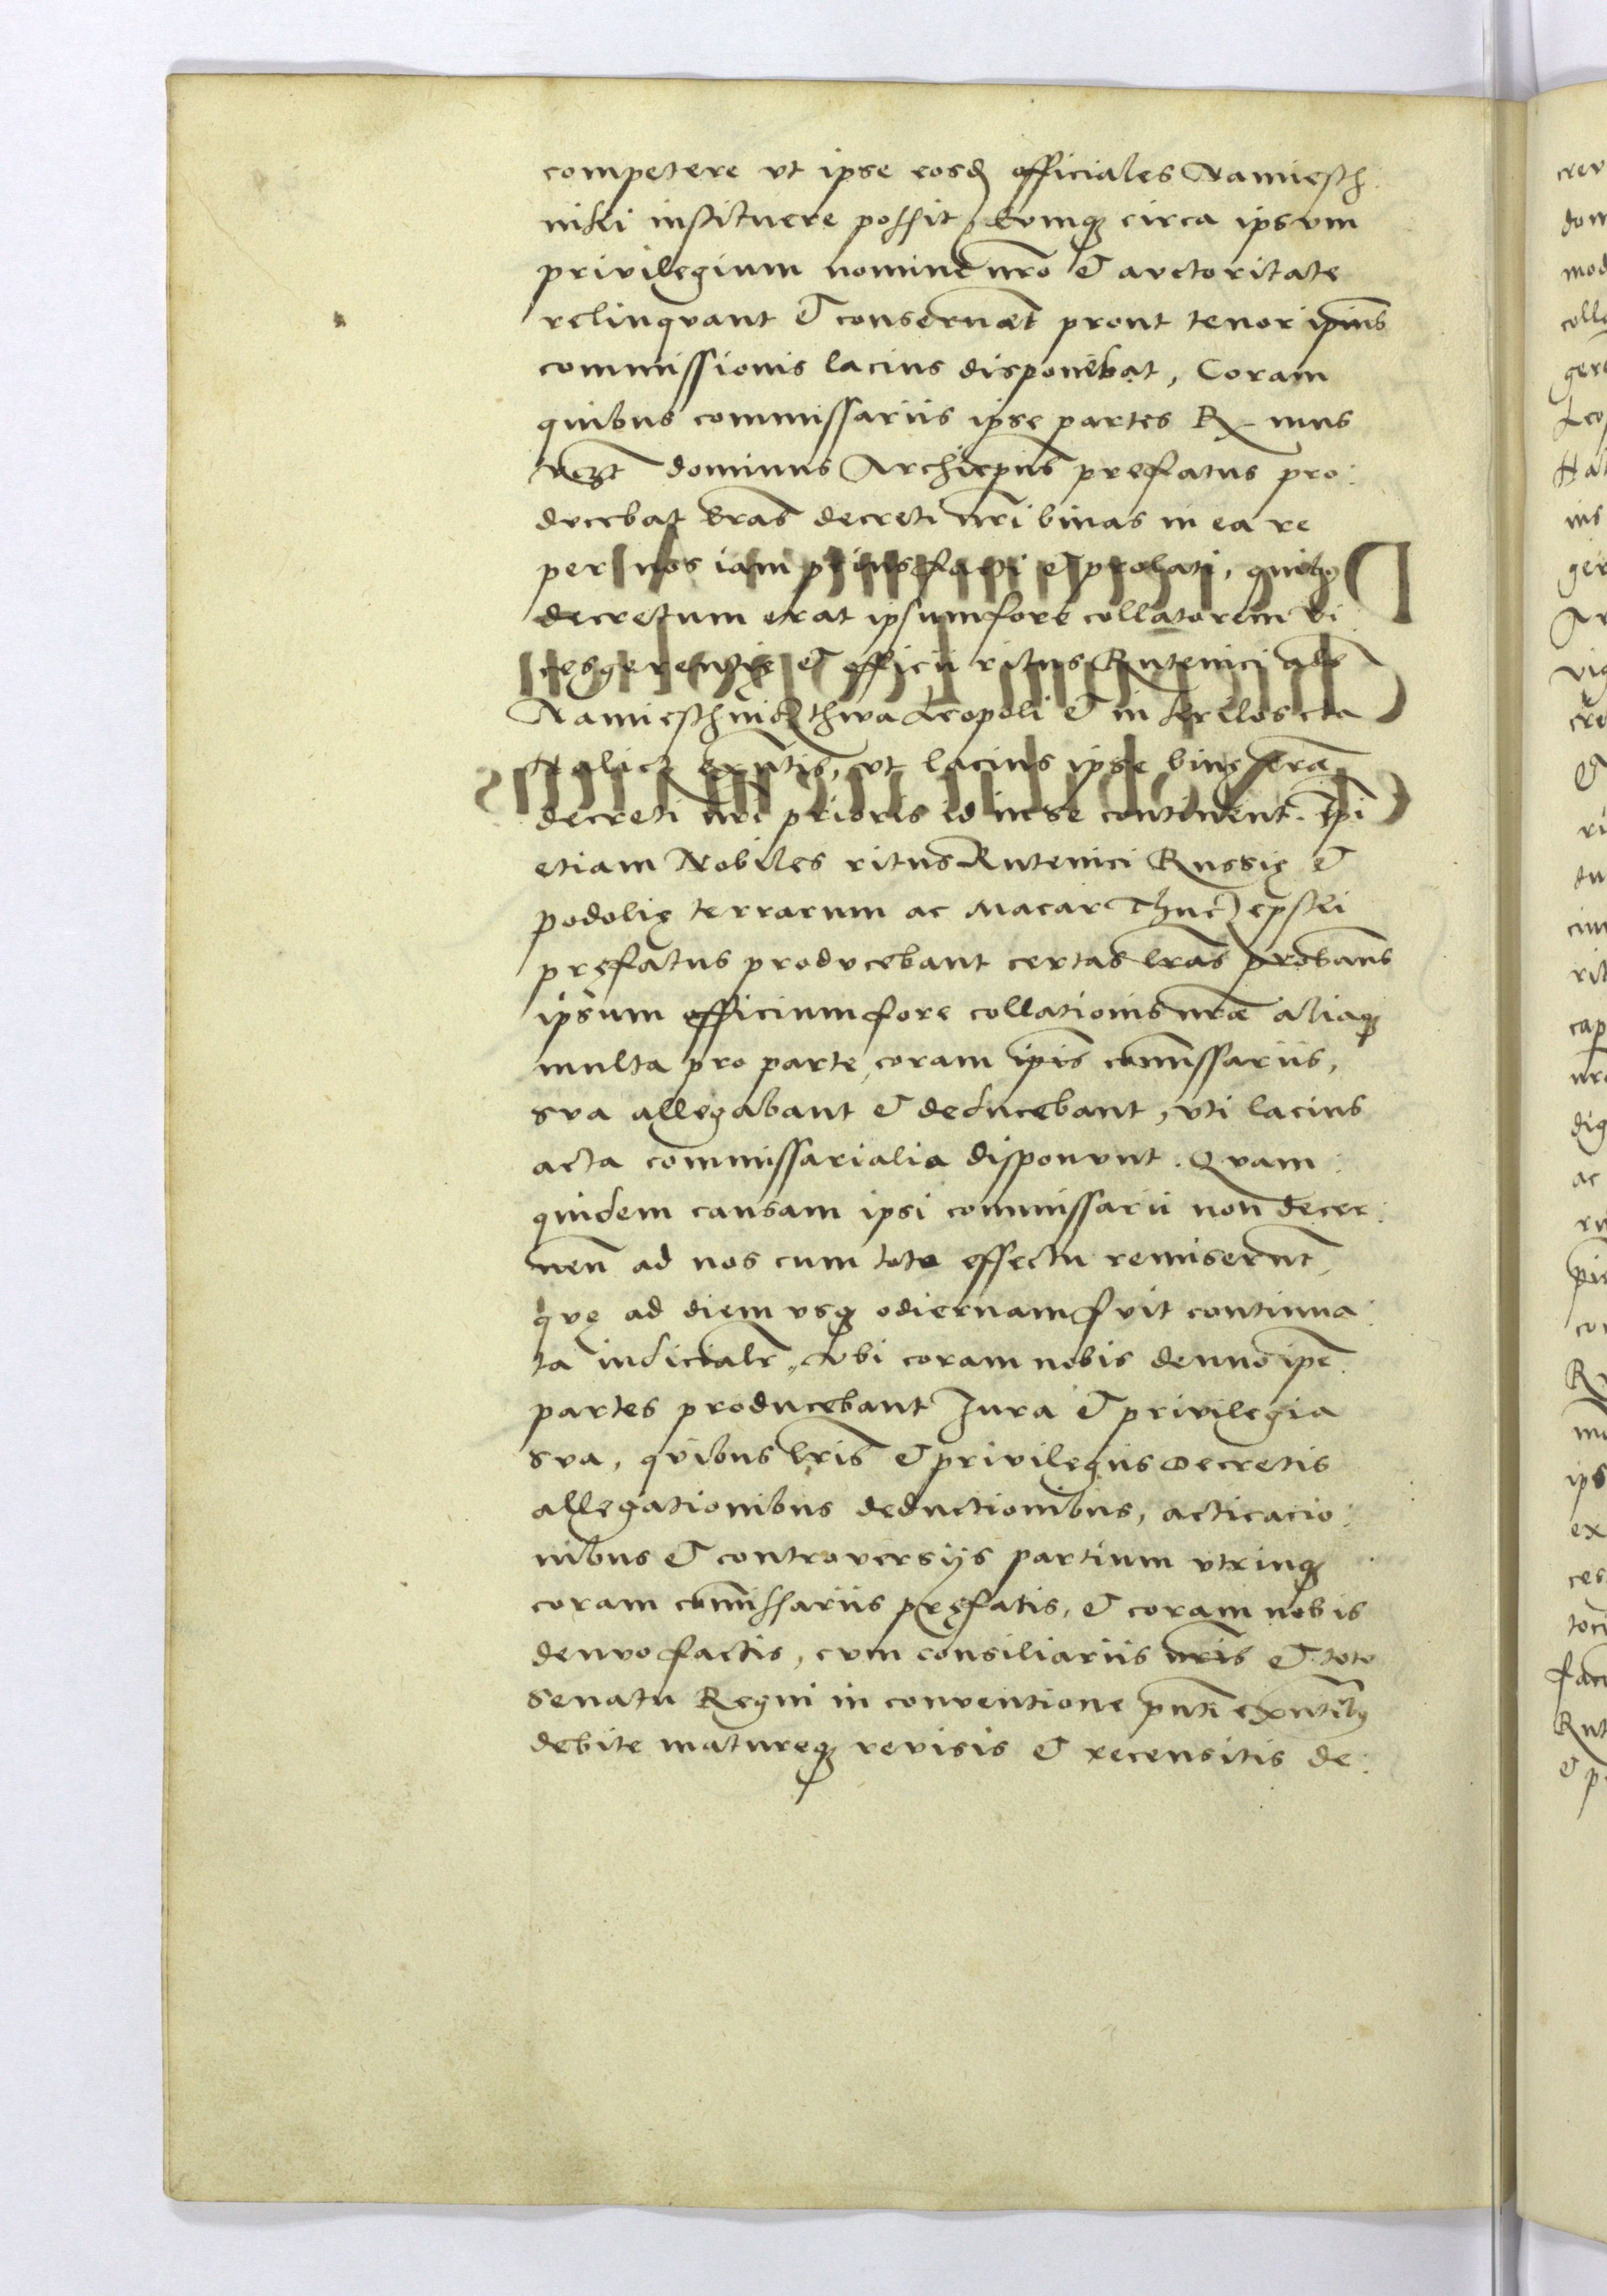 competere vt ipse eosd officiales Namiesth
niki instituere possit, Eumq circa ipsum
privilegium nomine nro et auctoritate
relinquant et conservaet prout tenor ipius
commissionis lacius disponebat, Coram
quibus commissariis ipse partes R mus
dominus Archiepus prefatus pro:
ducebat lras decreti nri binas in ea re
per nos iam prius facti et prolati, quibq
decretum erat ipsum fore collatorem vi
cesgerentię et officii ritus Rutenici als
Namiesthnicthwa Leopoli et in
Halicz exntis, vt lacius ipse binę lrae
decreti nri prioris id in se continent. Ipi
etiam Nobiles ritus Rutenici Russię et
podolię terrarum ac Macar
pręfatus producebant certas lras probans
ipsum officium fore collationis nrae aliaq
multa pro parte, coram ipis comissariis,
sua allegabant et deducebant, vti lacius
acta commissarialia disponunt. Quam
quidem causam ipsi commissarii non decer:
nen ad nos cum toto effectu remiserunt,
quę ad diem vsq odiernam fuit continua:
ta iudicialr, vbi coram nobis denuo ipe
partes producebant Jura et privilegia
sua, quibus lris et privilegiis Decretis
allegationibus deductionibus, acticacio:
nibus et controversijs partium vtrinq
coram comissariis pręfatis, et coram nobis
denuo factis, cum consiliariis nris et toto
Senatu Regni in conventione pnti exntibq
debite matureq revisis et recensitis de: